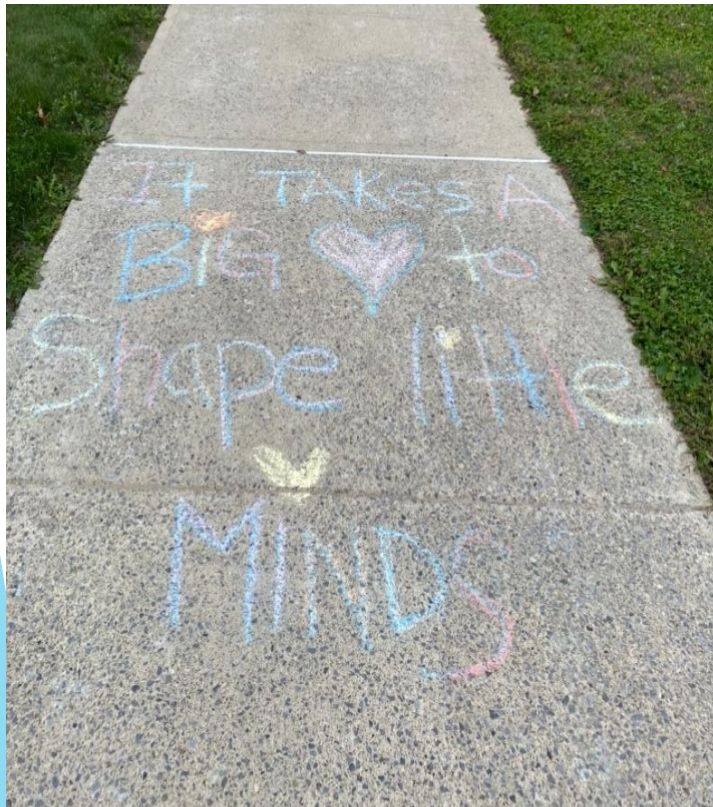 It TAKes A
BiG ♥ to
Shape little
MINDS